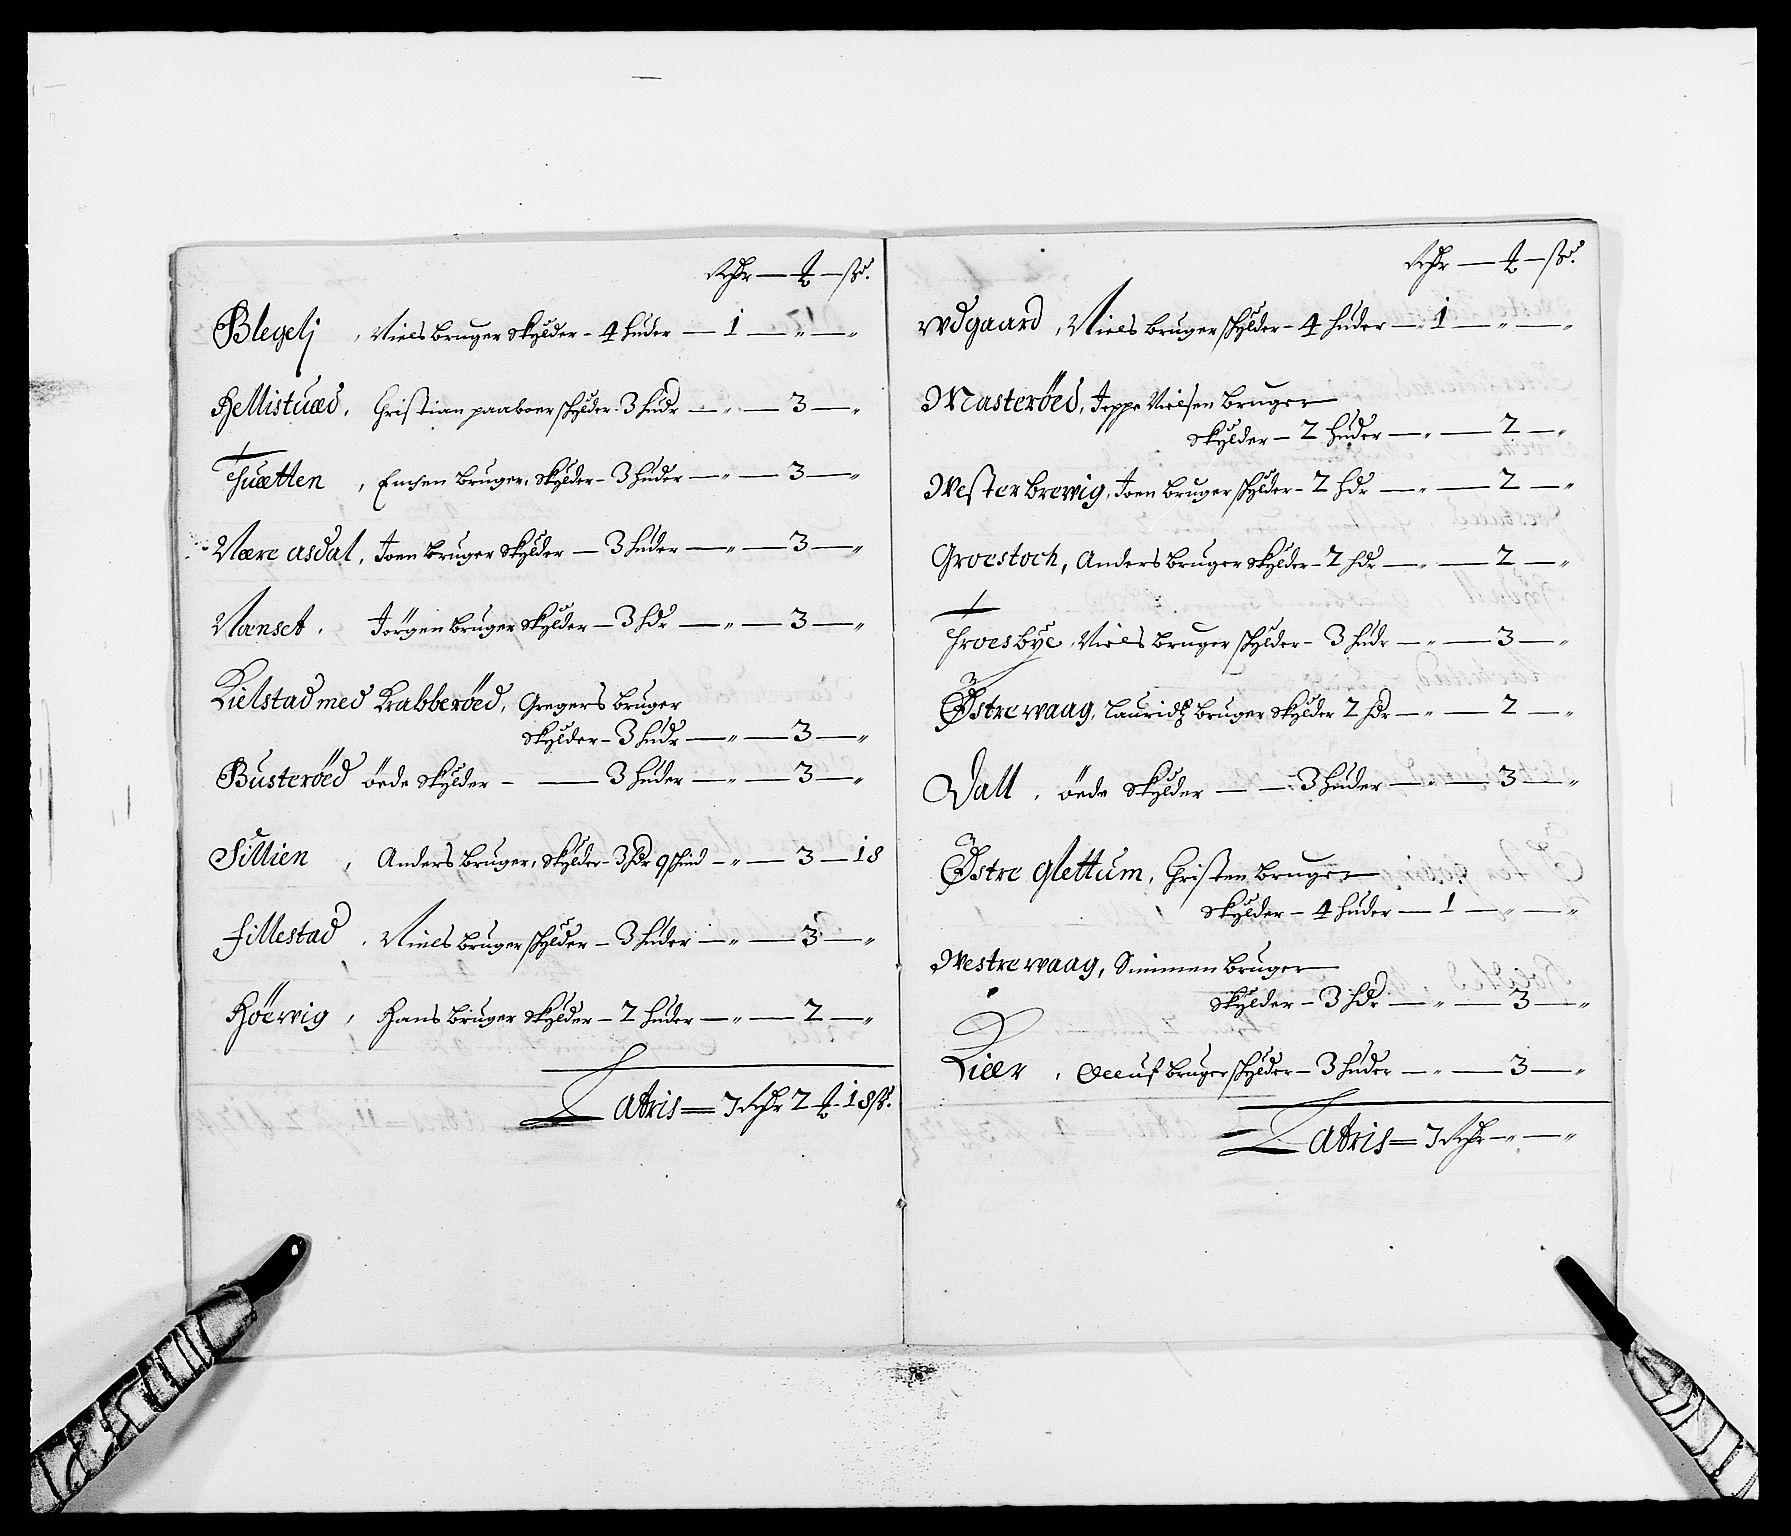 Rdr — ₰ — ß.
Blegelj, Niels bruger Skylder – 4 huder — 1 — „ — „
Hellistuæd, Christian paaboer skylder 3 hudr — „ — 3 — „
Tuætten, bruger, Skylder – 3 huder — „ — 3 — „
Nære asdal, Joen bruger Skylder — 3 huder — „ — 3 — „
Nanset, Jörgen bruger Skylder — 3 hdr — „ — 3 — „
Kielstad med Krabberöed, Gregers bruger
Skylder – 3 hudr — „ — 3 — „
Busteröed öede Skylder – — 3 huder — „ — 3 — „
Sillien, Anders bruger, Skylder – 3 hdr 9 skind – „ — 3 — 18
Fillestad, Niels bruger skylder – 3 huder — „ — 3 — „
Höevig, Hans bruger Skylder – 2 huder — „ — 2 — „
Latris = 7 Rdr 2 ₰ 18 ß.
Rdr — ₰ — ß.
Wdgaard, Niels bruger skylder – 4 huder — 1 — „ — „
Masteröed, Jeppe Nielsen bruger
Skylder – 2 huder — „ — 2 — „
Westerbrewig, Joen bruger skylder – 2 hdr — „ — 2 — „
Groestoch, Anders bruger Skylder – 2 hdr — „ — 2 — „
Troesbye, Niels bruger skylder – 3 hudr — „ — 3 — „
Östre waag, Lauridtz bruger Skylder 2 hdr — „ — 2 — „
Dall, öede Skylder — — 3 huder — „ — 3 — „
Östre glettum, Christen bruger
Skylder – 4 huder — 1 — „ — „
Westre waag, Simmen bruger
Skylder – 3 hdr — „ — 3 — „
Kiær, Oeluf bruger skylder – 3 huder — „ — 3 — „
Latris = 7 Rdr – „ — „